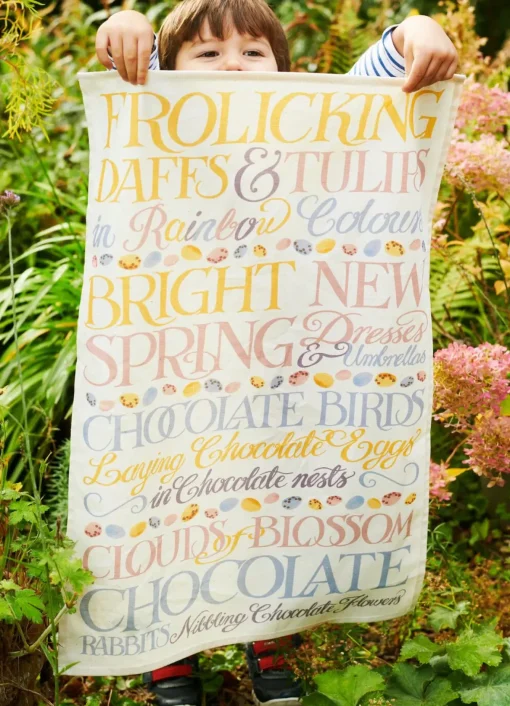 FROLICKING
DAFFS & TULIPS
in Rainbow Colours
BRIGHT NEW
SPRING Dresses
& Umbrellas
CHOCOLATE BIRDS
Laying Chocolate Eggs
in Chocolate nests
CLOUDS of BLOSSOM
CHOCOLATE
RABBITS Nibbling Chocolate Flowers